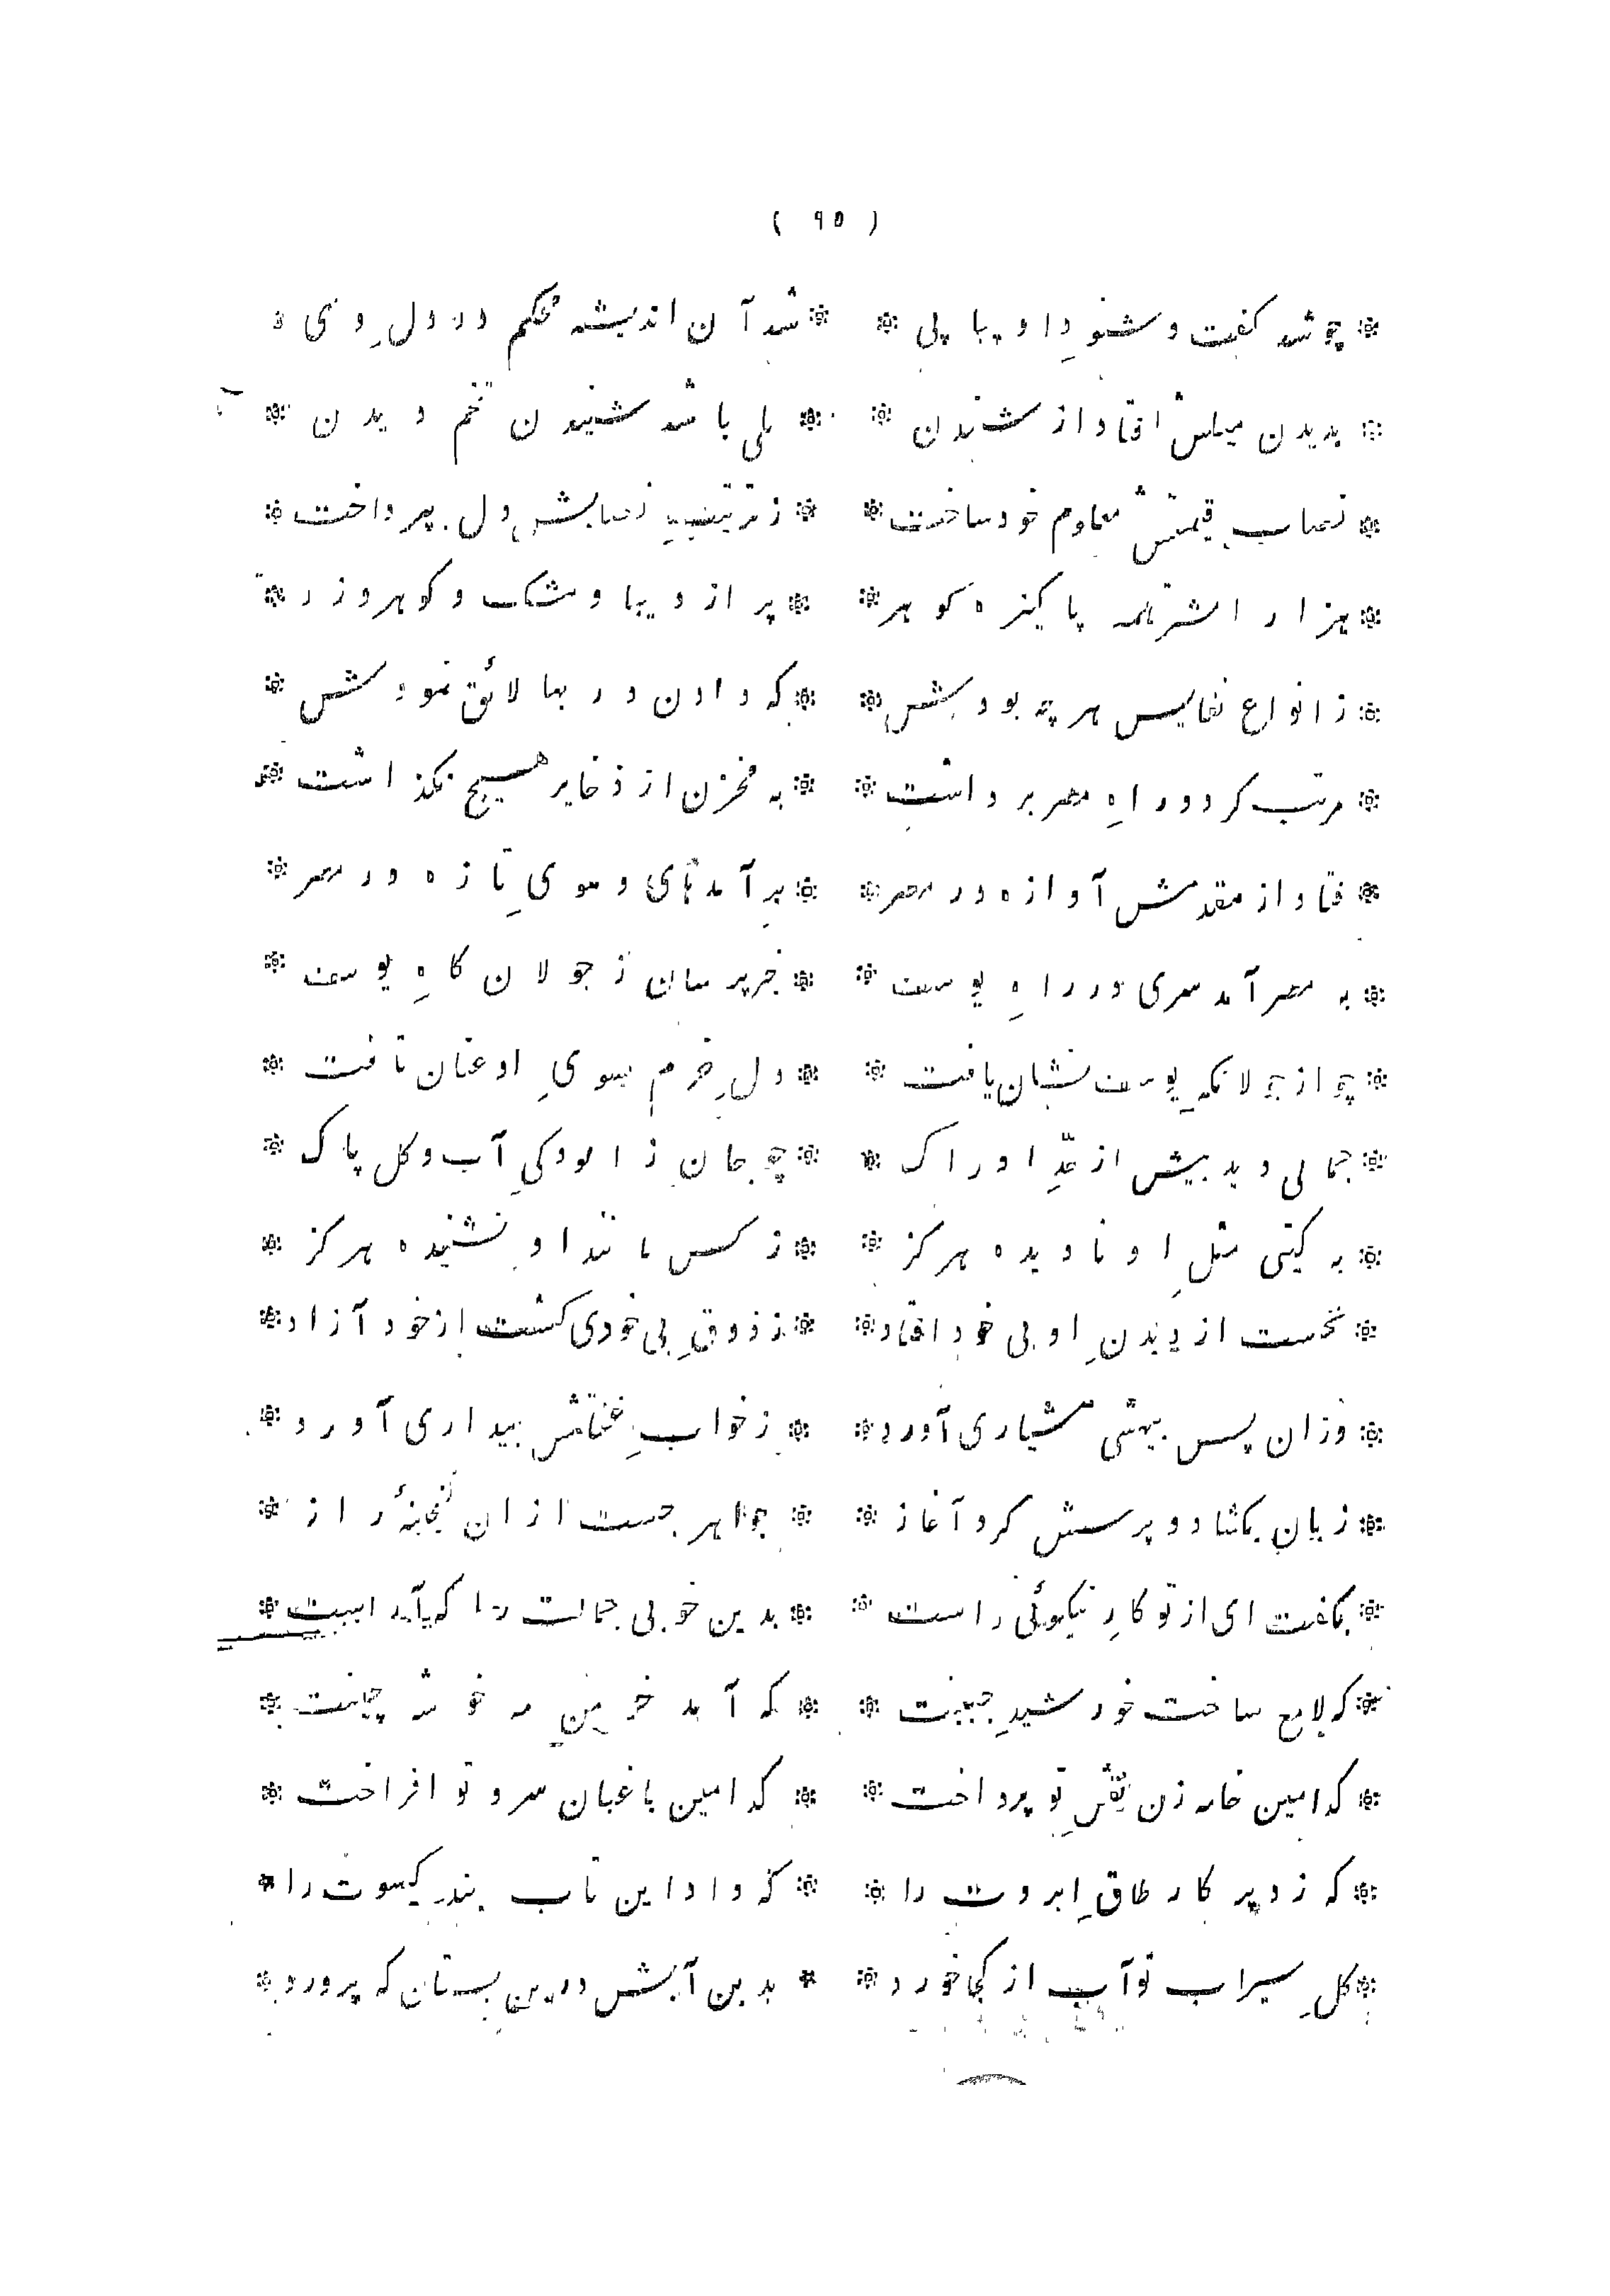 ( ٩٥ )
چو شد گفت و شنود او پیاپی * شد آن اندیشه محکم در دل وی
بدیدن میلش افتاد از شنیدن * بلی باشد شنیدن تخم دیدن
نصاب قیمتش معلوم خود ساخت * ز ترتیب نصابش دل بپرداخت
هزار اشتر همه پاکیزه گوهر * پر از دیبا و مشک و گوهر و زر
ز انواع نفایس هر چه بودش * که دادن در بها لائق نمودش
مرتب کرد و راه مصر برداشت * به مخزن از ذخایر هیچ نگذاشت
فتاد از مقدمش آوازه در مصر * بر آمد های و هوی تازه در مصر
به مصر آمد سری در راه یوسف * خبر پرسان ز جولان گاه یوسف
چو از جولانگه یوسف نشان یافت * دل خرم بسوی او عنان تافت
جمالی دید بیش از حدّ ادراک * چو جان ز آلودگی آب و گل پاک
به گیتی مثل او نادیده هرگز * ز کس مانند او نشنیده هرگز
نخست از دیدن او بی خود افتاد * ز ذوق بی خودی گشت از خود آزاد
وزان پس بیهشی هشیاری آورد * ز خواب غفلتش بیداری آورد
زبان بگشاد و پرسش کرد آغاز * جواهر جست ازان گنجینهٔ راز
بگفت ای از تو کار نیکوئی راست * بدین خوبی جمالت را که آراست
که لامع ساخت خورشید جبینت * که آمد خرمن مه خوشه چینت
کدامین خامه زن نقش تو پرداخت * کدامین باغبان سرو تو افراخت
که زد پرکار طاق ابروت را * که داد این تاب بند گیسوت را
گل سیراب تو آب از کجا خورد * بدین آبش درین بستان که پرورد